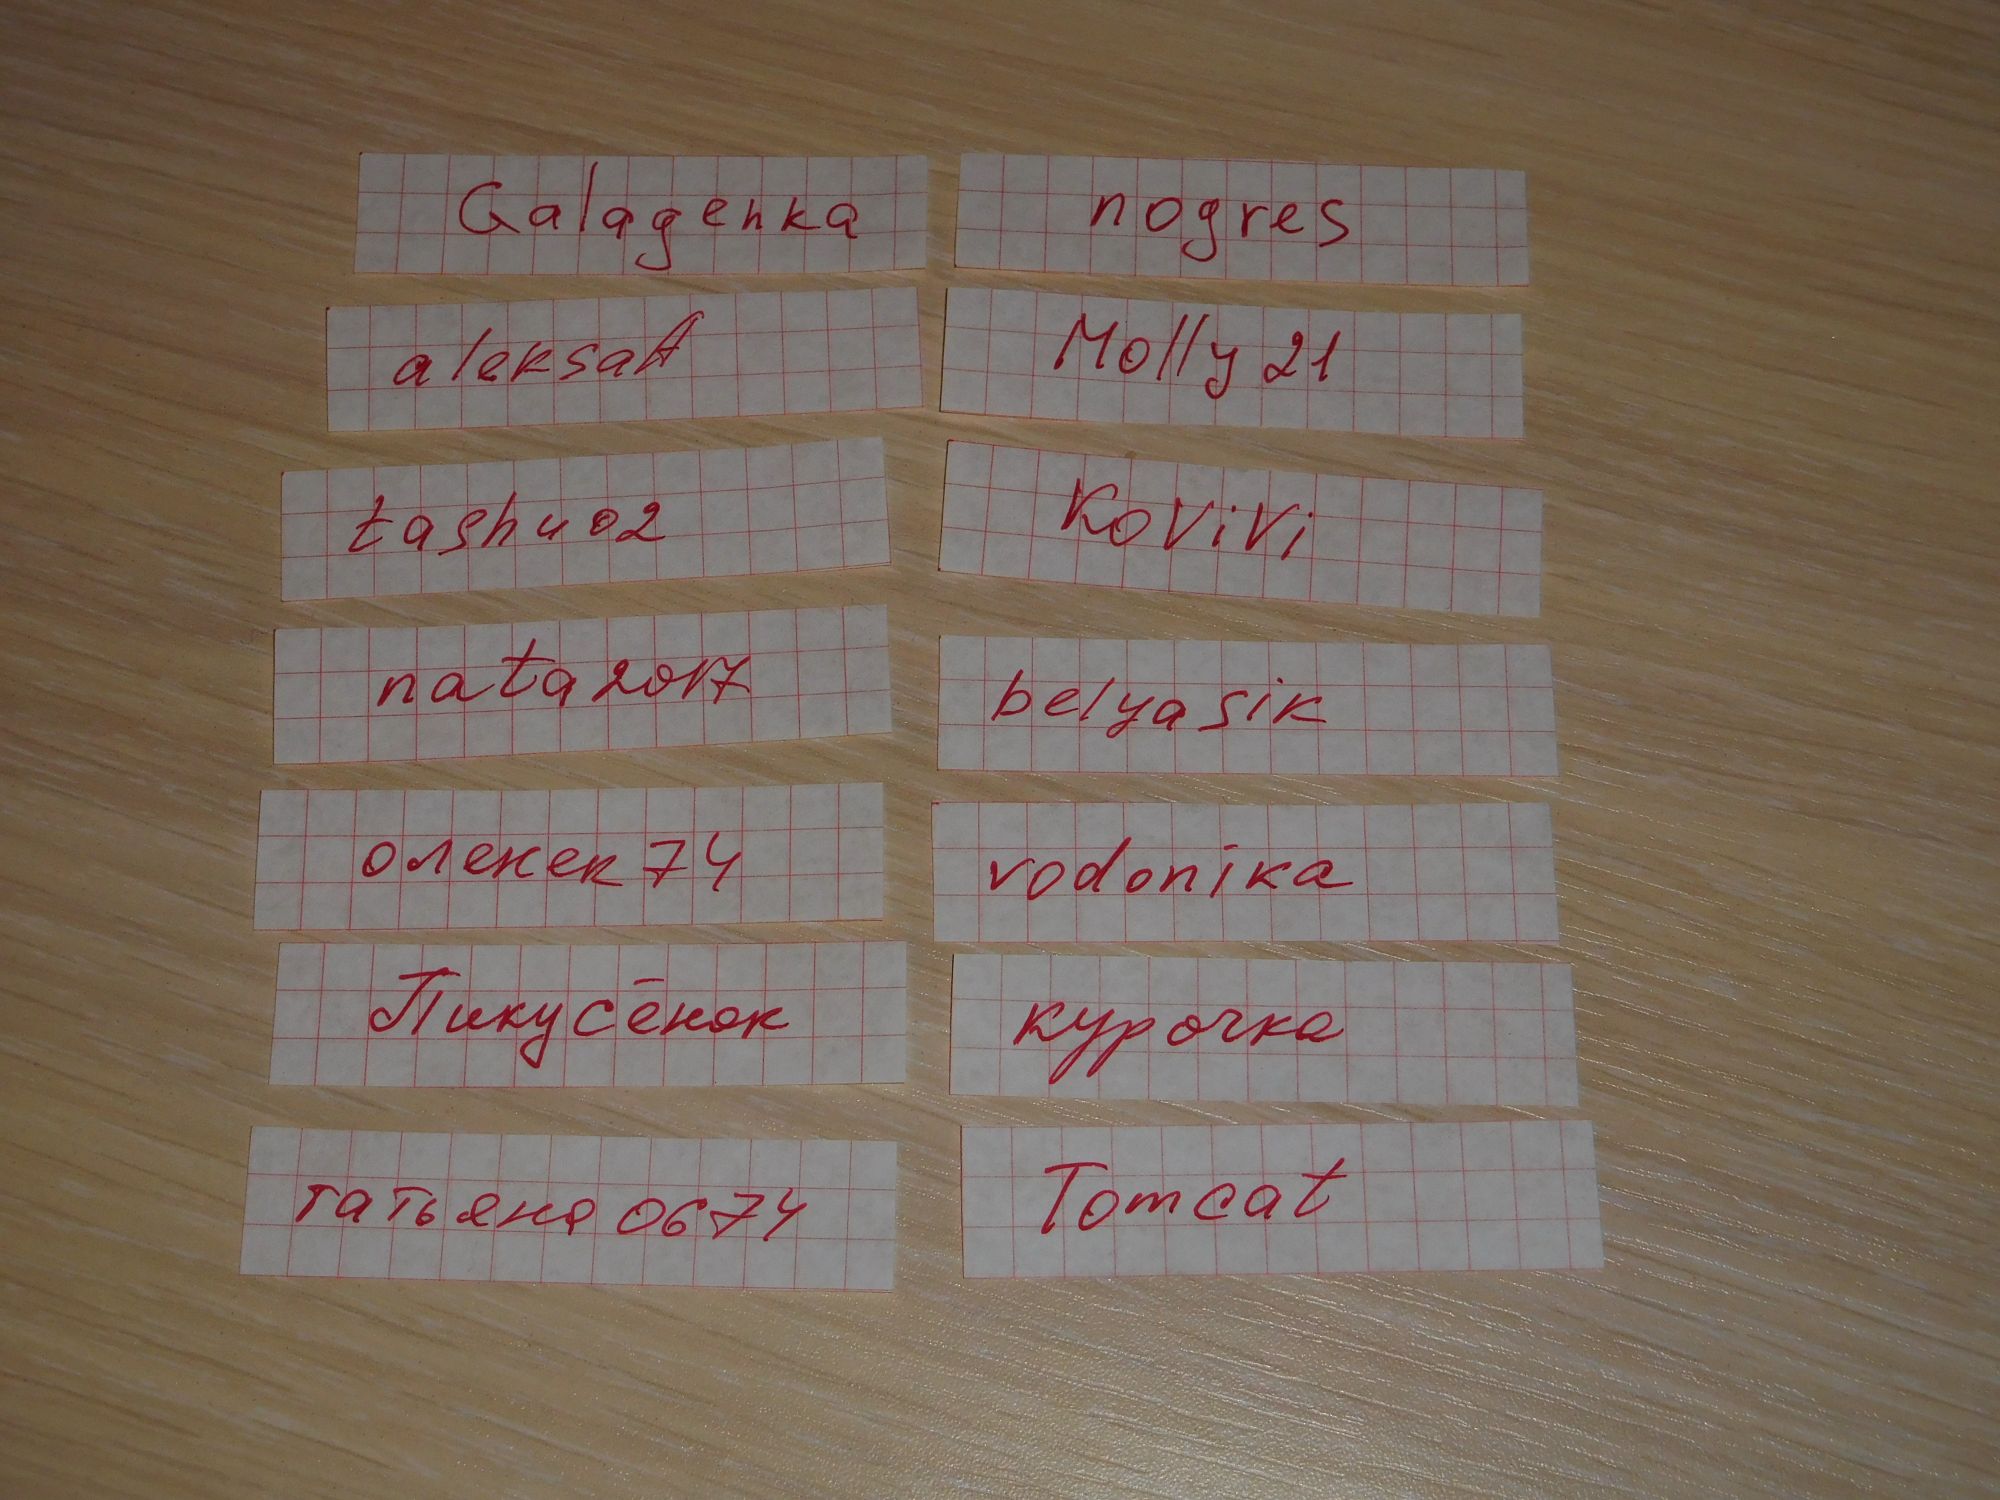 Galagenka
nogres
aleksaA
Molly21
tashu02
KoViVi
nata2017
belyasik
оленек74
vodonika
Пикусёнок
курочка
татьяна0674
Tomcat